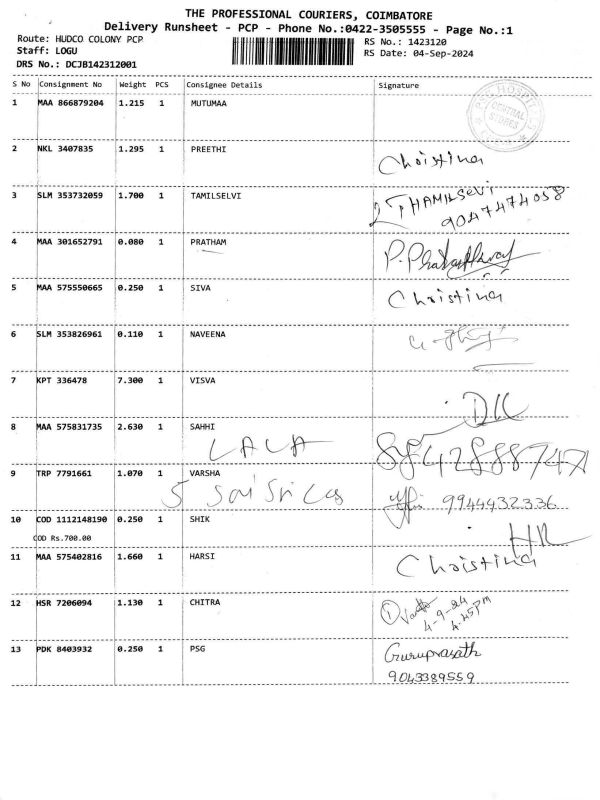 THE PROFESSIONAL COURIERS, COIMBATORE
Delivery Runsheet - PCP - Phone No.:0422-3505555 - Page No.:1
Route: HUDCO COLONY PCP
RS No.: 1423120
Staff: LOGU
RS Date: 04-Sep-2024
DRS No.: DCJB142312001
S No Consignment No Weight PCS Consignee Details Signature
1 MAA 866879204 1.215 1 MUTUMAA
CENTRAL STORES
2 NKL 3407835 1.295 1 PREETHI Christina
3 SLM 353732059 1.700 1 TAMILSELVI THAMILSELVI
9047474058
4 MAA 301652791 0.080 1 PRATHAM
5 MAA 575550665 0.250 1 SIVA Christina
6 SLM 353826961 0.110 1 NAVEENA
7 KPT 336478 7.300 1 VISVA
DK
8 MAA 575831735 2.630 1 SAHHI
LALA
9 TRP 7791661 1.070 1 VARSHA
9944432336
10 COD 1112148190 0.250 1 SHIK
COD Rs.700.00
11 MAA 575402816 1.660 1 HARSI Christina
12 HSR 7206094 1.130 1 CHITRA
4-9-24
4.45pm
13 PDK 8403932 0.250 1 PSG Guruprasath
9043389559